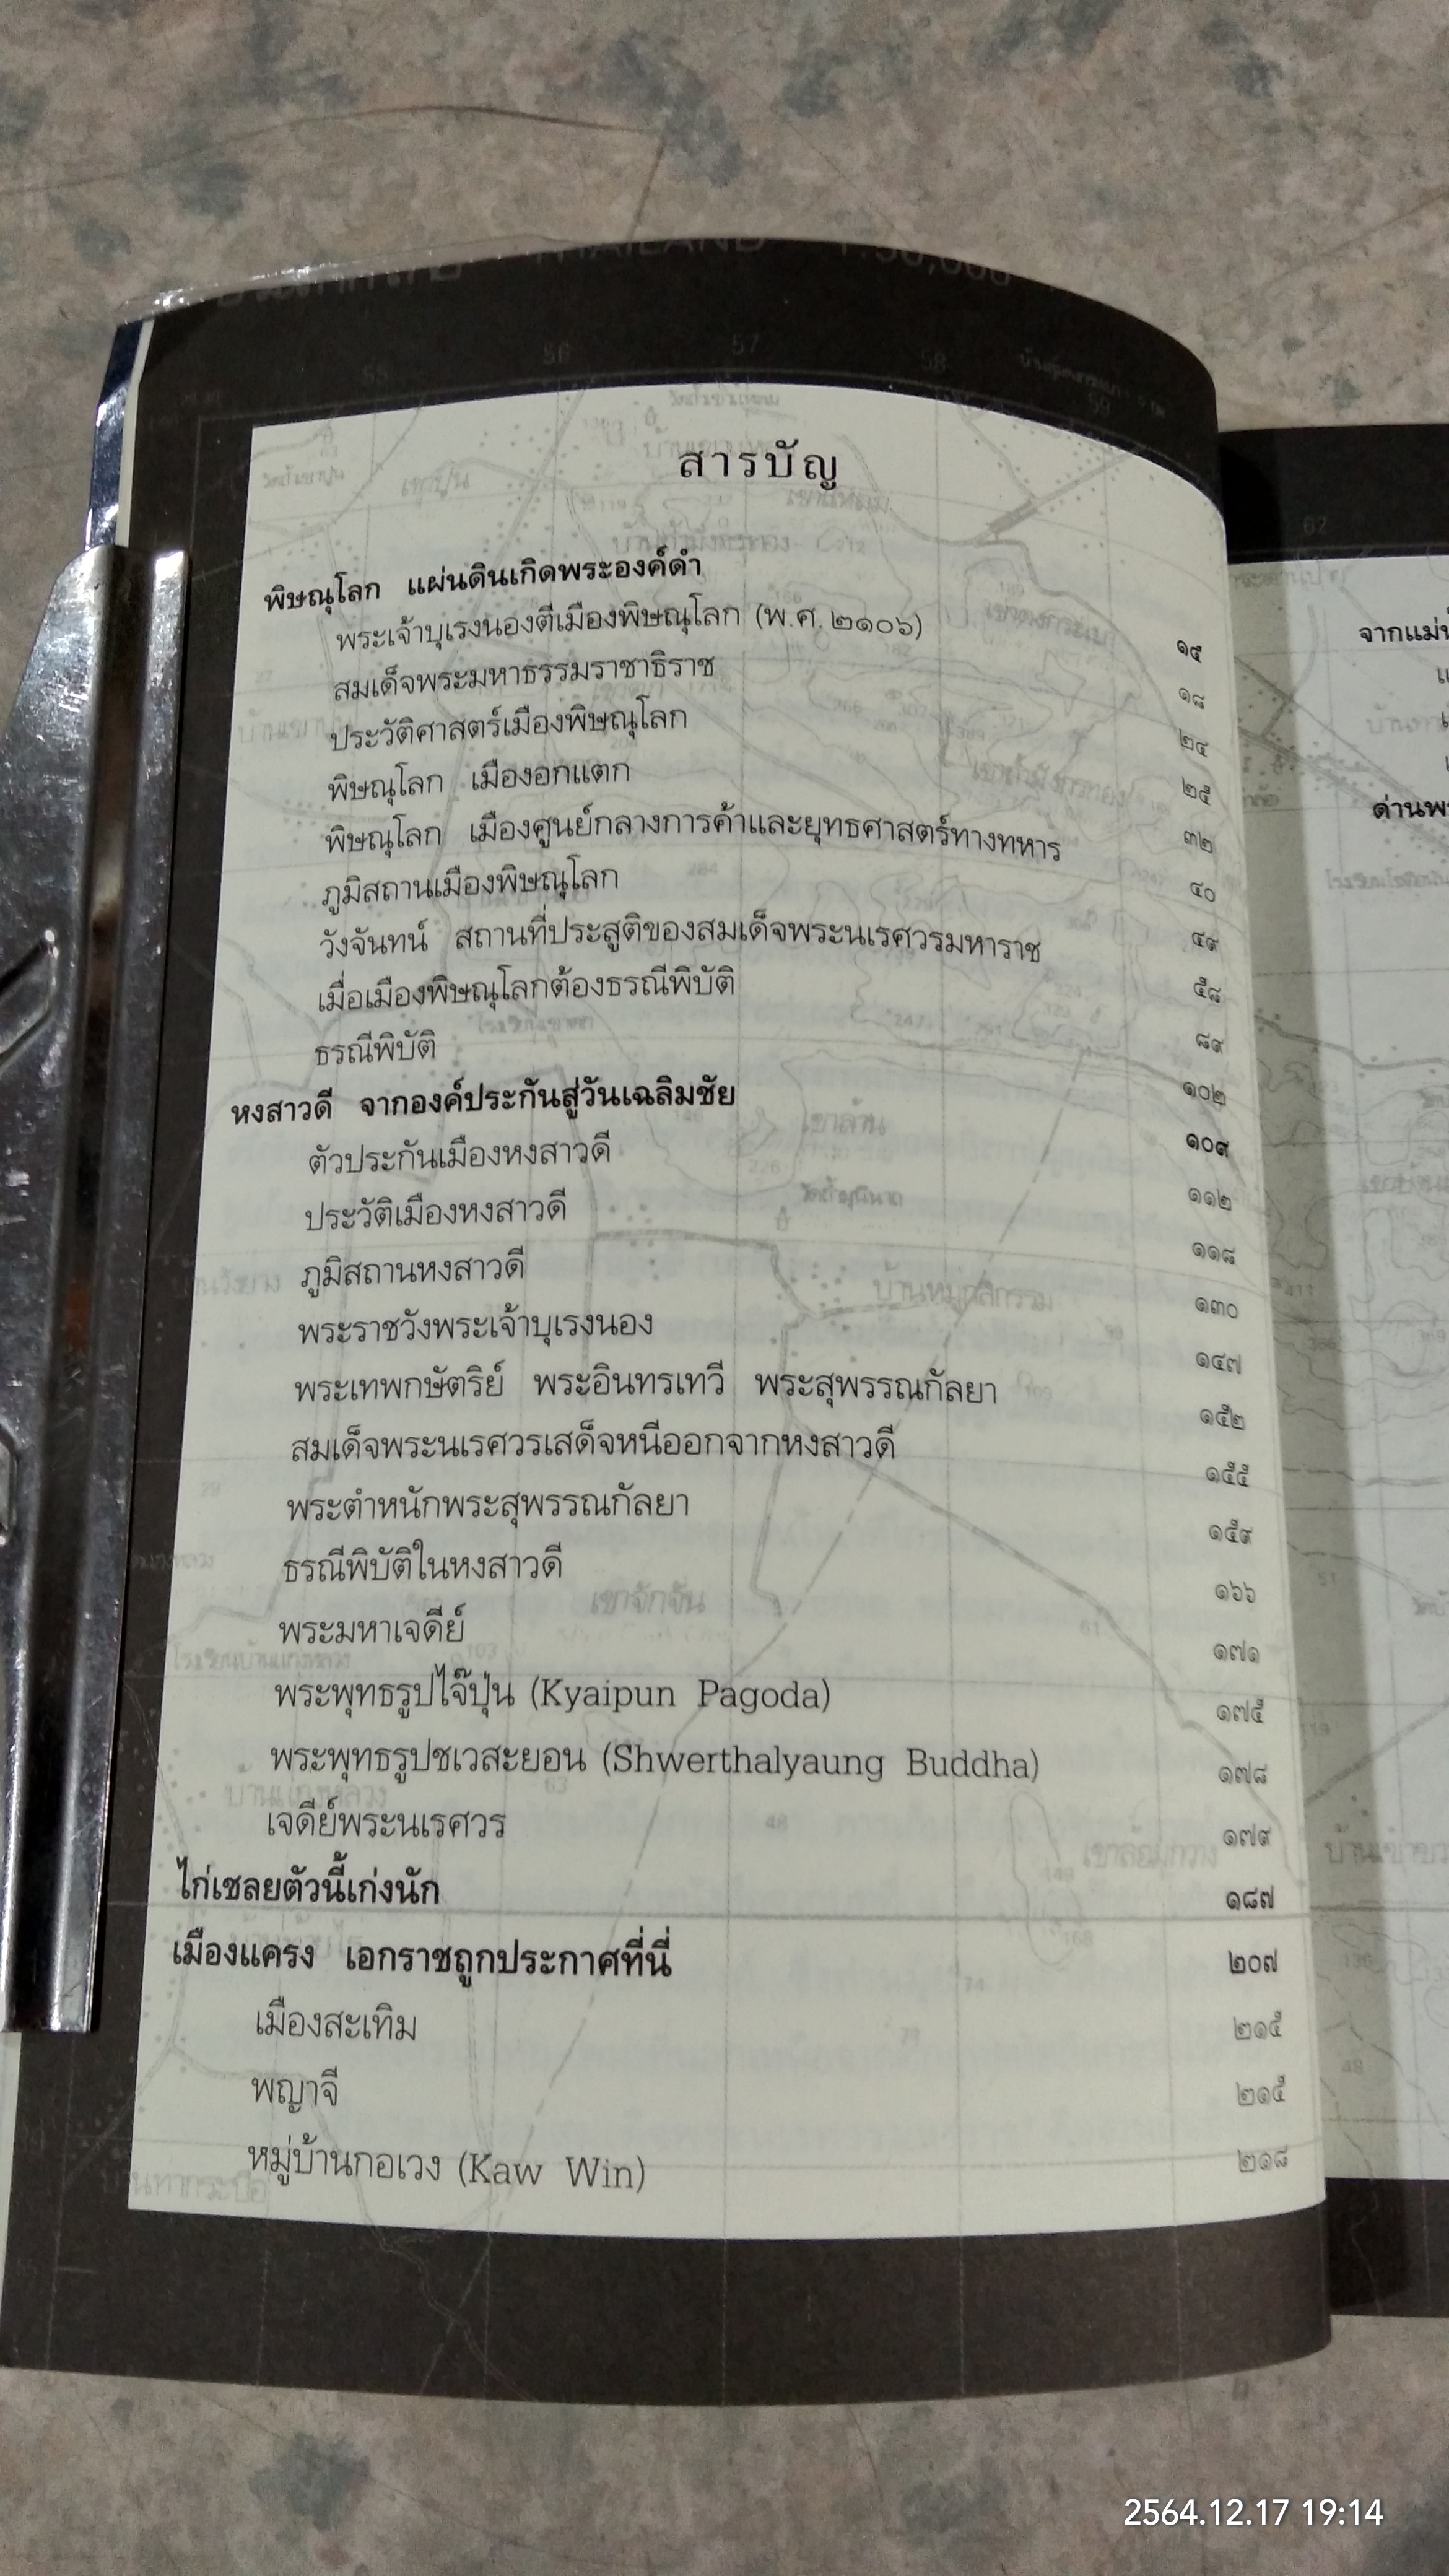 สารบัญ
พิษณุโลก แผ่นดินเกิดพระองค์ดำ ๑๕
พระเจ้าบุเรงนองตีเมืองพิษณุโลก (พ.ศ. ๒๑๐๖) ๑๘
สมเด็จพระมหาธรรมราชาธิราช ๒๔
ประวัติศาสตร์เมืองพิษณุโลก ๒๕
พิษณุโลก เมืองอกแตก ๓๒
พิษณุโลก เมืองศูนย์กลางการค้าและยุทธศาสตร์ทางทหาร ๔๐
ภูมิสถานเมืองพิษณุโลก ๔๙
วังจันทน์ สถานที่ประสูติของสมเด็จพระนเรศวรมหาราช ๕๘
เมื่อเมืองพิษณุโลกต้องธรณีพิบัติ ๘๙
ธรณีพิบัติ ๑๐๒
หงสาวดี จากองค์ประกันสู่วันเฉลิมชัย ๑๐๙
ตัวประกันเมืองหงสาวดี ๑๑๒
ประวัติเมืองหงสาวดี ๑๑๘
ภูมิสถานหงสาวดี ๑๓๐
พระราชวังพระเจ้าบุเรงนอง ๑๔๗
พระเทพกษัตริย์ พระอินทรเทวี พระสุพรรณกัลยา ๑๕๒
สมเด็จพระนเรศวรเสด็จหนีออกจากหงสาวดี ๑๕๕
พระตำหนักพระสุพรรณกัลยา ๑๕๙
ธรณีพิบัติในหงสาวดี ๑๖๖
พระมหาเจดีย์ ๑๗๑
พระพุทธรูปไจ๊ปุ่น (Kyaipun Pagoda) ๑๗๕
พระพุทธรูปชเวสะยอน (Shwerthalyaung Buddha) ๑๗๘
เจดีย์พระนเรศวร ๑๗๙
ไก่เชลยตัวนี้เก่งนัก ๑๘๗
เมืองแครง เอกราชถูกประกาศที่นี่ ๒๐๗
เมืองสะเทิม ๒๑๕
พญาจี ๒๑๕
หมู่บ้านกอเวง (Kaw Win) ๒๑๘
2564.12.17 19:14